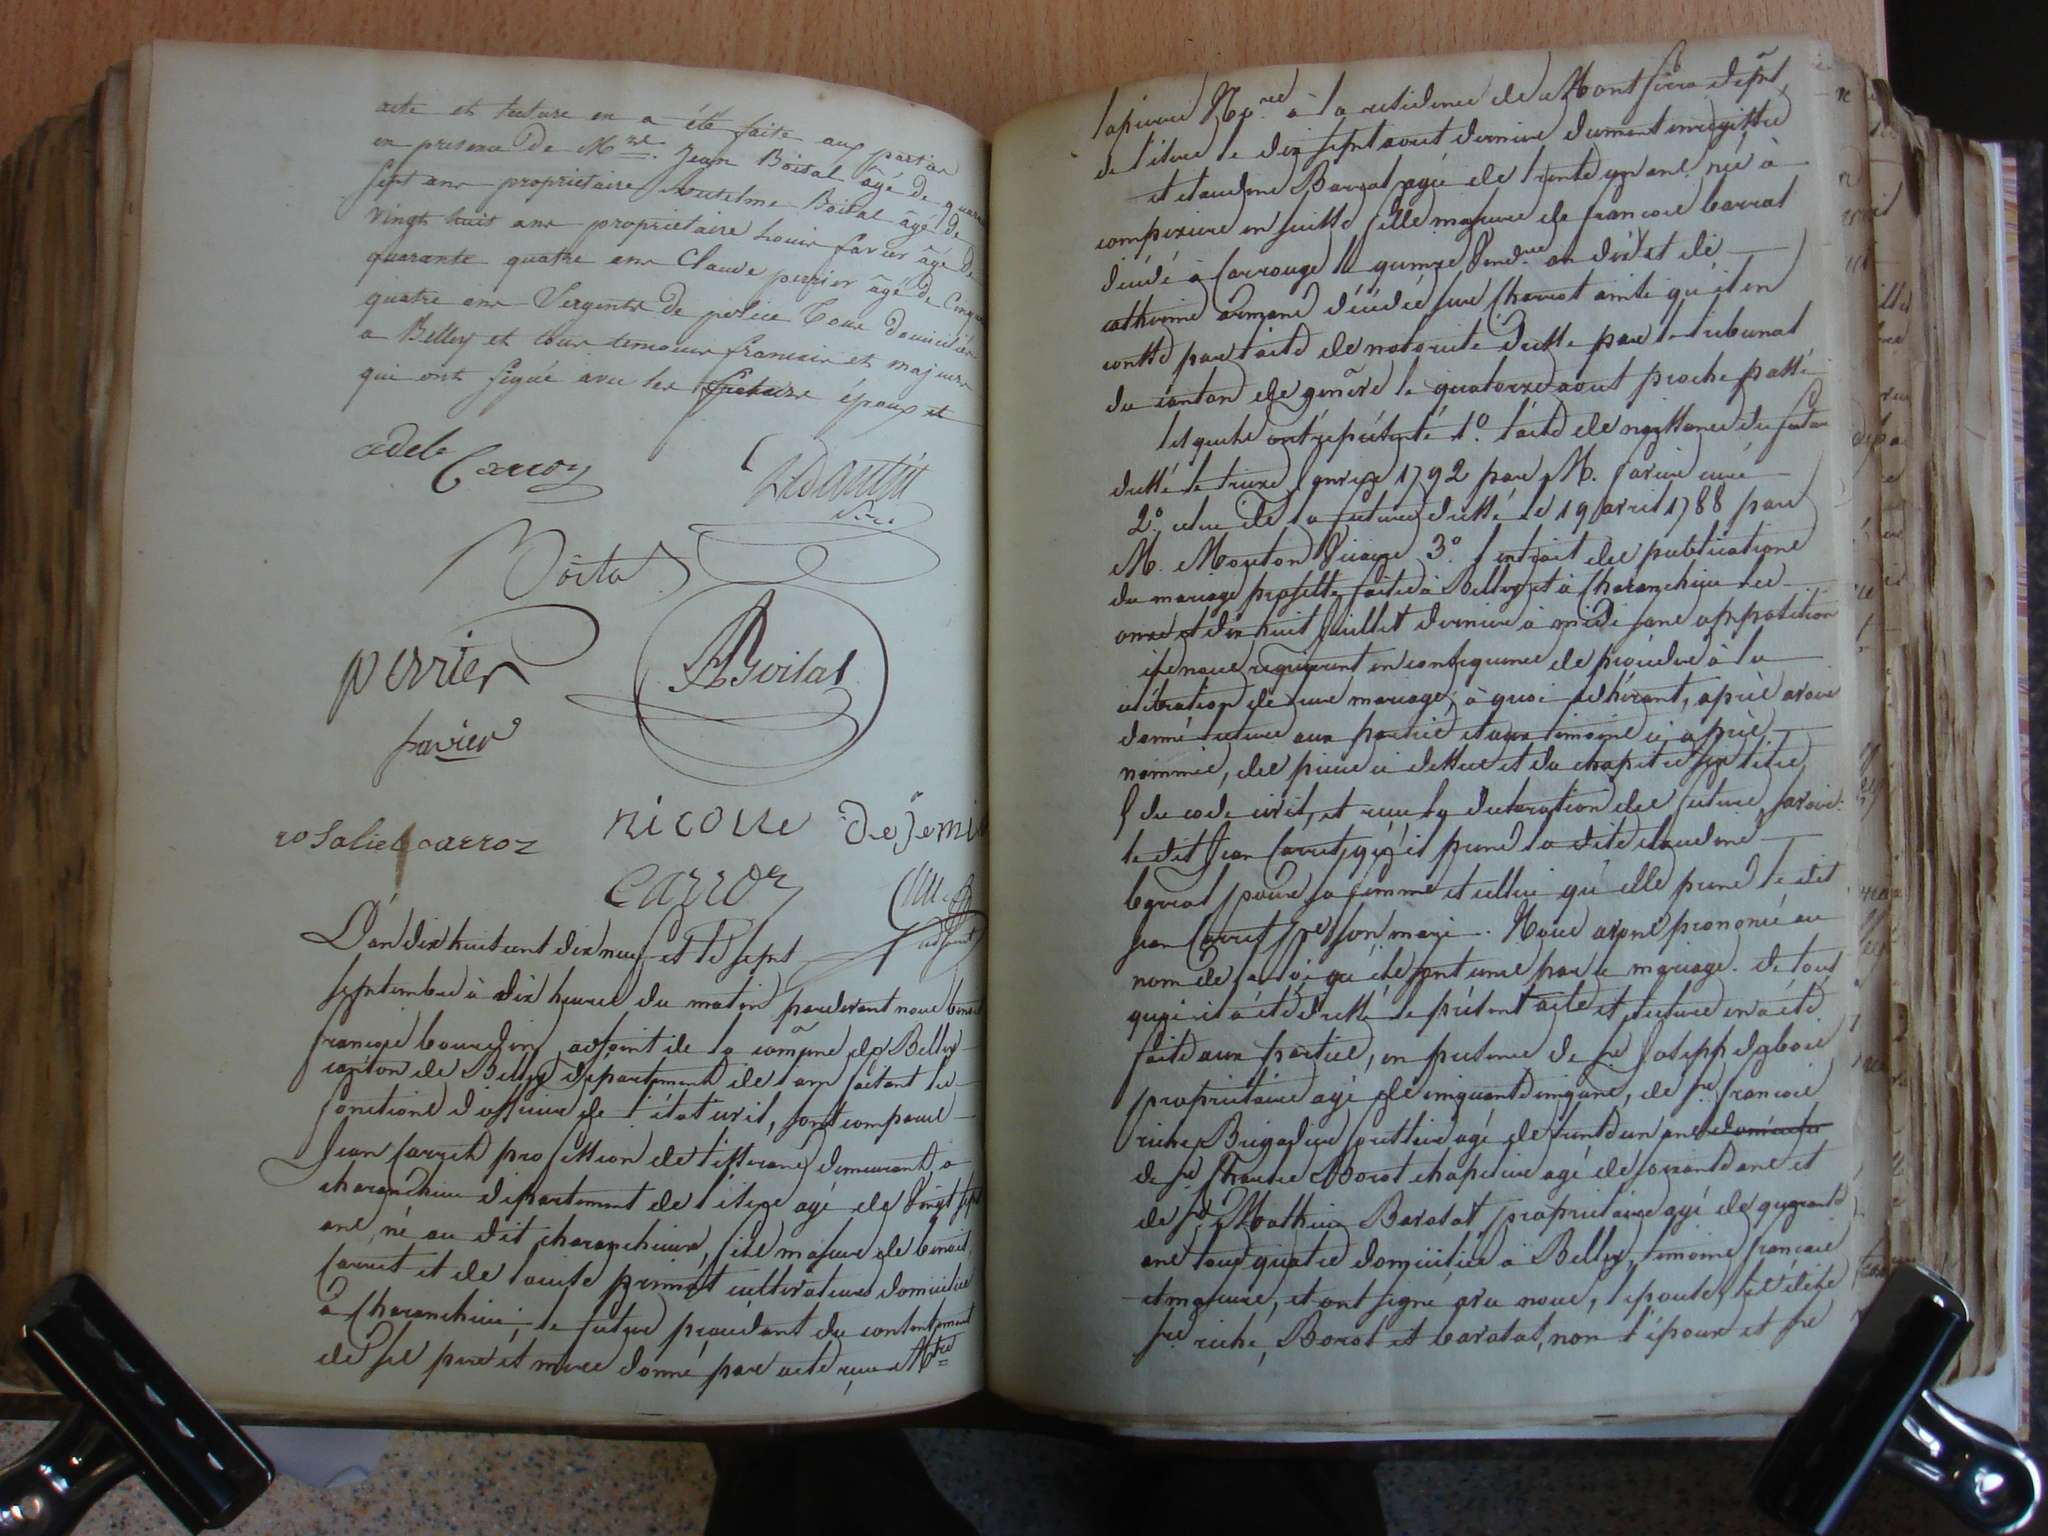 acte et lecture en a été faite aux parties
en presence de Mrs. Jean Boital âgé de quara
sept ans propriétaire Boital âgé de
vingt huit ans propriétaire Louis favier âgé de
quarante quatre ans Claude perrier âgé de Cinqu
quatre ans Sergents de police Tous domiciliés
a Belley et tous temoins francais et majeurs
qui ont signé avec les future époux et
adele Carroz
Boital
perrier
ABoital
favier
rosalie carroz
nicolle dejemi
carroz
adjoint
L'an dix huit cent dix neuf et le sept
septembre à dix heures du matin pardevant nous benoit
francois bourdin adjoint de la comune de Belley
canton de Belley département de l'ain faisant les
fonctions d'officier de l'état civil, sont comparus
Jean Carret profession de tisserand demeurant à
charanchieu département de l'isere agé de vingt sept
ans, né au dit charanchieu, fils majeur de benoit
Carret et de cultivateurs domiciliés
à Charanchieu, le futur procédant du consentement
de ses pere et mere donné par acte reçu Mtre
lapierre Nre à la residence de Montferra dépt
de l'isere le dix sept aout dernier dument enregistré
et claudine Barrat agée de trente un ans née à
compexiere en suisse fille majeure de francois barrat
décédé à Carrouge le quinze an dix et de
catherine armand décédée sur Chariot ainsi qu'il en
conste par l'acte de notorieté dressé par le tribunal
du canton de genêve le quatorze aout proche passé
lesquels ont représenté 1º. l'acte de naissance du futur
dressé le treize janvier 1792 par M. farier curé
2º. celui de la future dressé le 19 avril 1788 par
M. Mouton Vicaire 3º l'extrait des publications
du mariage projetté faites à Belley et à Charanchieu les
onze et dix huit juillet dernier à midi sans opposition
ils nous requierent en consequence de procéder à la
célébration de leur mariage, à quoi adhérant, après avoir
donné lecture aux parties et aux témoins ci après
nommés, des pieces ci dessus et du chapitre six titre
5 du code civil, et reçu la declaration des futurs, savoir:
le dit Jean Carret, qu'il prend la dite claudine
barrat pour sa femme et celle ci qu'elle prend le dit
Jean Carret pour son mari. Nous avons prononcé au
nom de la loi qu'ils sont unis par le mariage. de tout
quoi il a été dressé le présent acte et lecture en a été
faite aux parties, en présence de sr Joseph duboi
propriétaire agé de cinquante cinq ans, de sr francois
riche Brigadier agé de trente un ans
de sr Borot chapelier agé de soixante ans et
de sr Mathieu Baratat propriétaire agé de quarante
ans tous quatre domiciliés à Belley, témoins francais
et majeurs, et ont signé avec nous, l'épouse, les dits
srs riche, Borot et baratat, non l'époux et sr